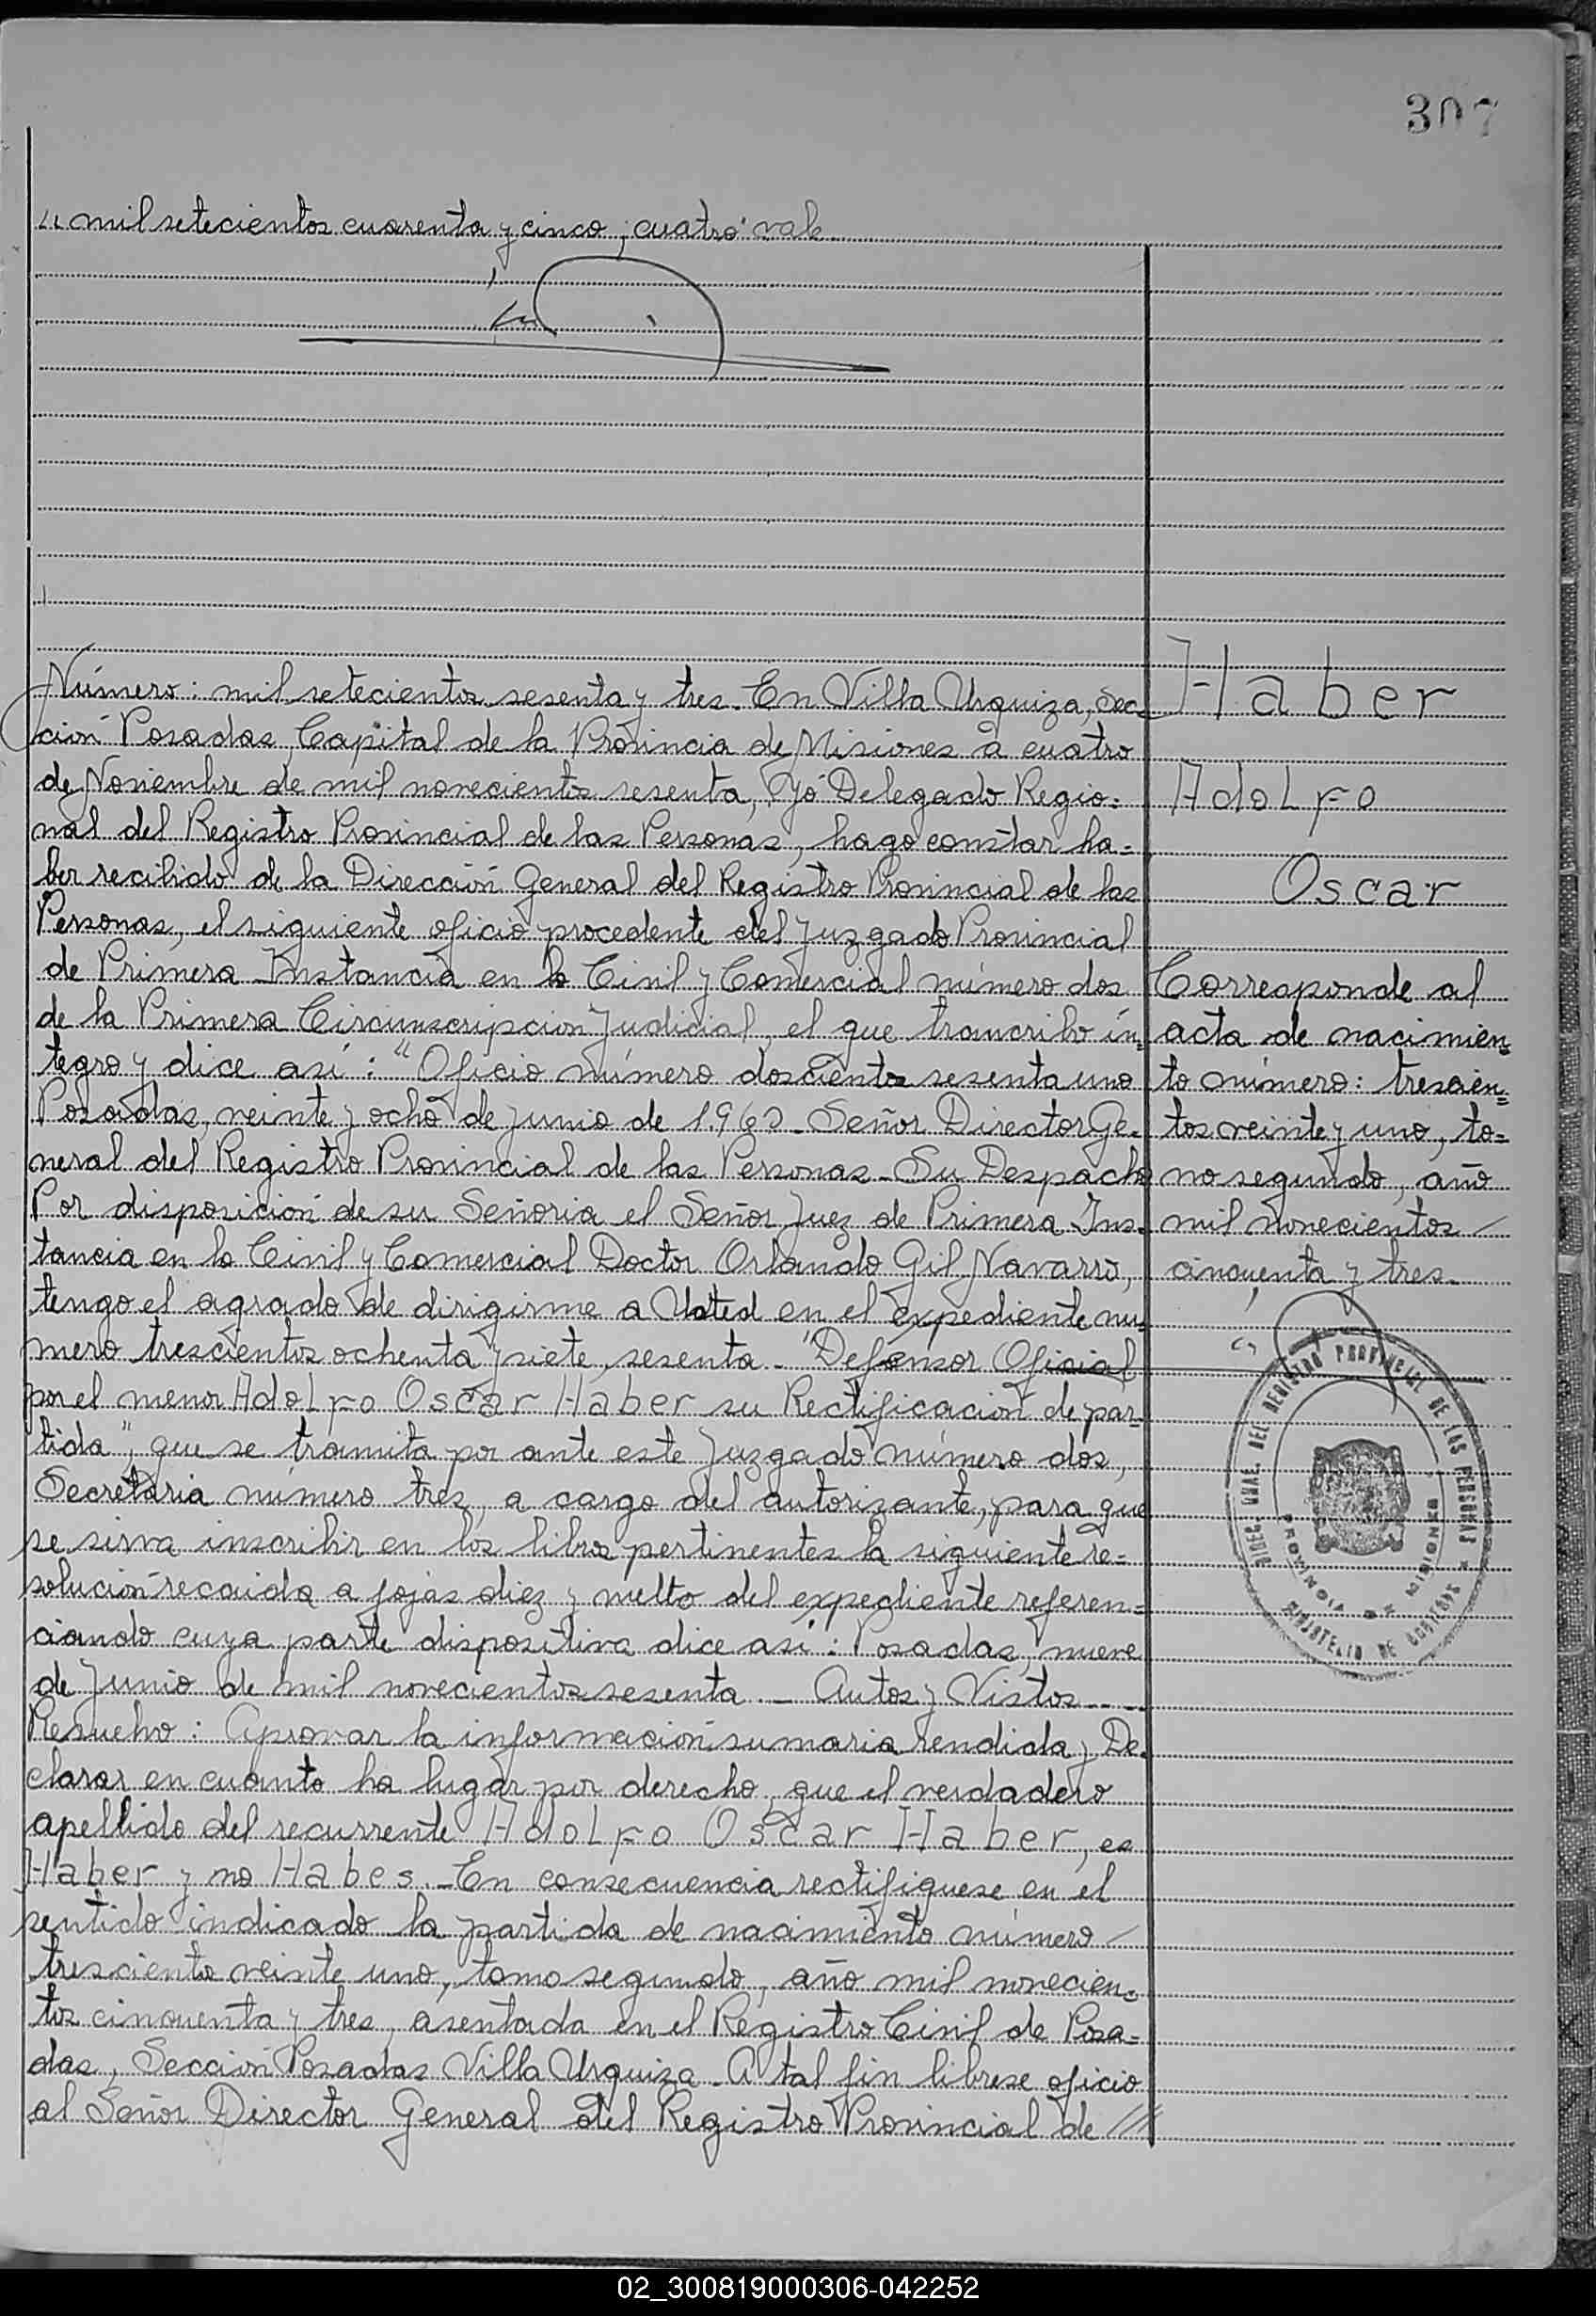 307
mil setecientos cuarenta y cinco; cuatro" vale
Número: mil setecientos sesenta y tres. En Villa Urquiza, Sec=
ción Posadas, Capital de la Provincia de Misiones a cuatro
de Noviembre de mil novecientos sesenta, Yo Delegado Regio=
nal del Registro Provincial de las Personas, hago constar ha=
ber recibido de la Dirección General del Registro Provincial de las
Personas, el siguiente oficio procedente del Juzgado Provincial
de Primera Instancia en lo Civil y Comercial número dos
de la Primera Circunscripcion Judicial, el que transcribo ín=
tegro y dice así: "Oficio número doscientos sesenta uno
Posadas, veinte y ocho de junio de 1.960 - Señor Director Ge=
neral del Registro Provincial de las Personas - Su Despacho
Por disposición de su Señoria el Señor Juez de Primera Ins=
tancia en lo Civil y Comercial Doctor Orlando Gil Navarro,
tengo el agrado de dirigirme a Usted en el expediente nu=
mero trescientos ochenta y siete, sesenta - "Defensor Oficial
por el menor Adolfo Oscar Haber su Rectificación de par=
tida", que se tramita por ante este Juzgado número dos,
Secretaria numero tres, a cargo del autorizante, para que
se sirva inscribir en los libros pertinentes la siguiente re=
solución recaida a fojas diez y vuelto del expediente referen=
ciando cuya parte dispositiva dice así: Posadas, nueve
de Junio de mil novecientos sesenta. - Autos y Vistos...
Resuelvo: Aprovar la información sumaria rendida y De=
clarar en cuanto ha lugar por derecho, que el verdadero
apellido del recurrente Adolfo Oscar Haber, es
Haber y no Habes. - En consecuencia rectifiquese en el
sentido indicado la partida de nacimiento número
trescientos veinte uno, tomo segundo, año mil novecien=
tos cincuenta y tres, asentada en el Registro Civil de Posa=
das, Sección Posadas Villa Urquiza - A tal fin librese oficio
al Señor Director General del Registro Provincial de ///
Haber
Adolfo
Oscar
Corresponde al
acta de nacimien=
to número: trescien=
tos veinte y uno, to=
mo segundo, año
mil novecientos
cincuenta y tres.
DIREC. GRAL. DEL REGISTRO PROVINCIAL DE LAS PERSONAS
PROVINCIA DE MISIONES
MINISTERIO DE GOBIERNO
02_300819000306-042252